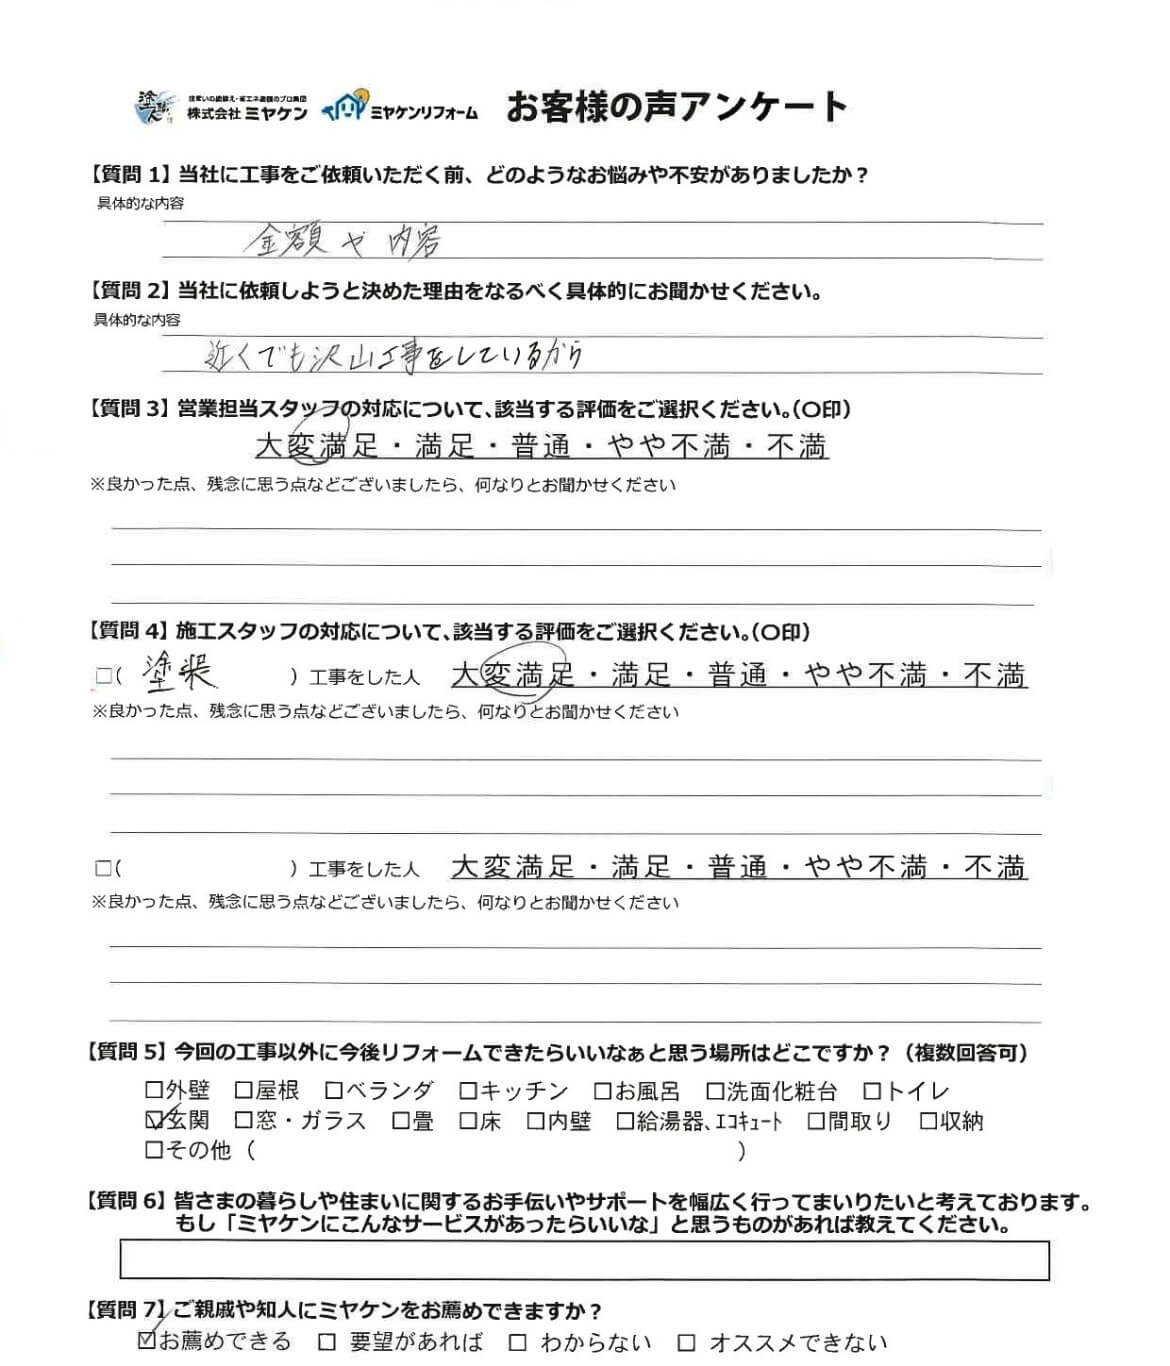 塗替え職人 住まいの塗替え・省エネ塗装のプロ集団
株式会社 ミヤケン ミヤケンリフォーム お客様の声アンケート
【質問 1】当社に工事をご依頼いただく前、どのようなお悩みや不安がありましたか？
具体的な内容
金額や内容
【質問 2】当社に依頼しようと決めた理由をなるべく具体的にお聞かせください。
具体的な内容
近くでも沢山工事をしているから
【質問 3】営業担当スタッフの対応について、該当する評価をご選択ください。（〇印）
大変満足・満足・普通・やや不満・不満
※良かった点、残念に思う点などございましたら、何なりとお聞かせください
【質問 4】施工スタッフの対応について、該当する評価をご選択ください。（〇印）
□（ 塗装 ）工事をした人 大変満足・満足・普通・やや不満・不満
※良かった点、残念に思う点などございましたら、何なりとお聞かせください
□（ ）工事をした人 大変満足・満足・普通・やや不満・不満
※良かった点、残念に思う点などございましたら、何なりとお聞かせください
【質問 5】今回の工事以外に今後リフォームできたらいいなぁと思う場所はどこですか？（複数回答可）
□外壁 □屋根 □ベランダ □キッチン □お風呂 □洗面化粧台 □トイレ
☑玄関 □窓・ガラス □畳 □床 □内壁 □給湯器、ｴｺｷｭｰﾄ □間取り □収納
□その他（ ）
【質問 6】皆さまの暮らしや住まいに関するお手伝いやサポートを幅広く行ってまいりたいと考えております。
もし「ミヤケンにこんなサービスがあったらいいな」と思うものがあれば教えてください。
【質問 7】ご親戚や知人にミヤケンをお薦めできますか？
☑お薦めできる □ 要望があれば □ わからない □ オススメできない